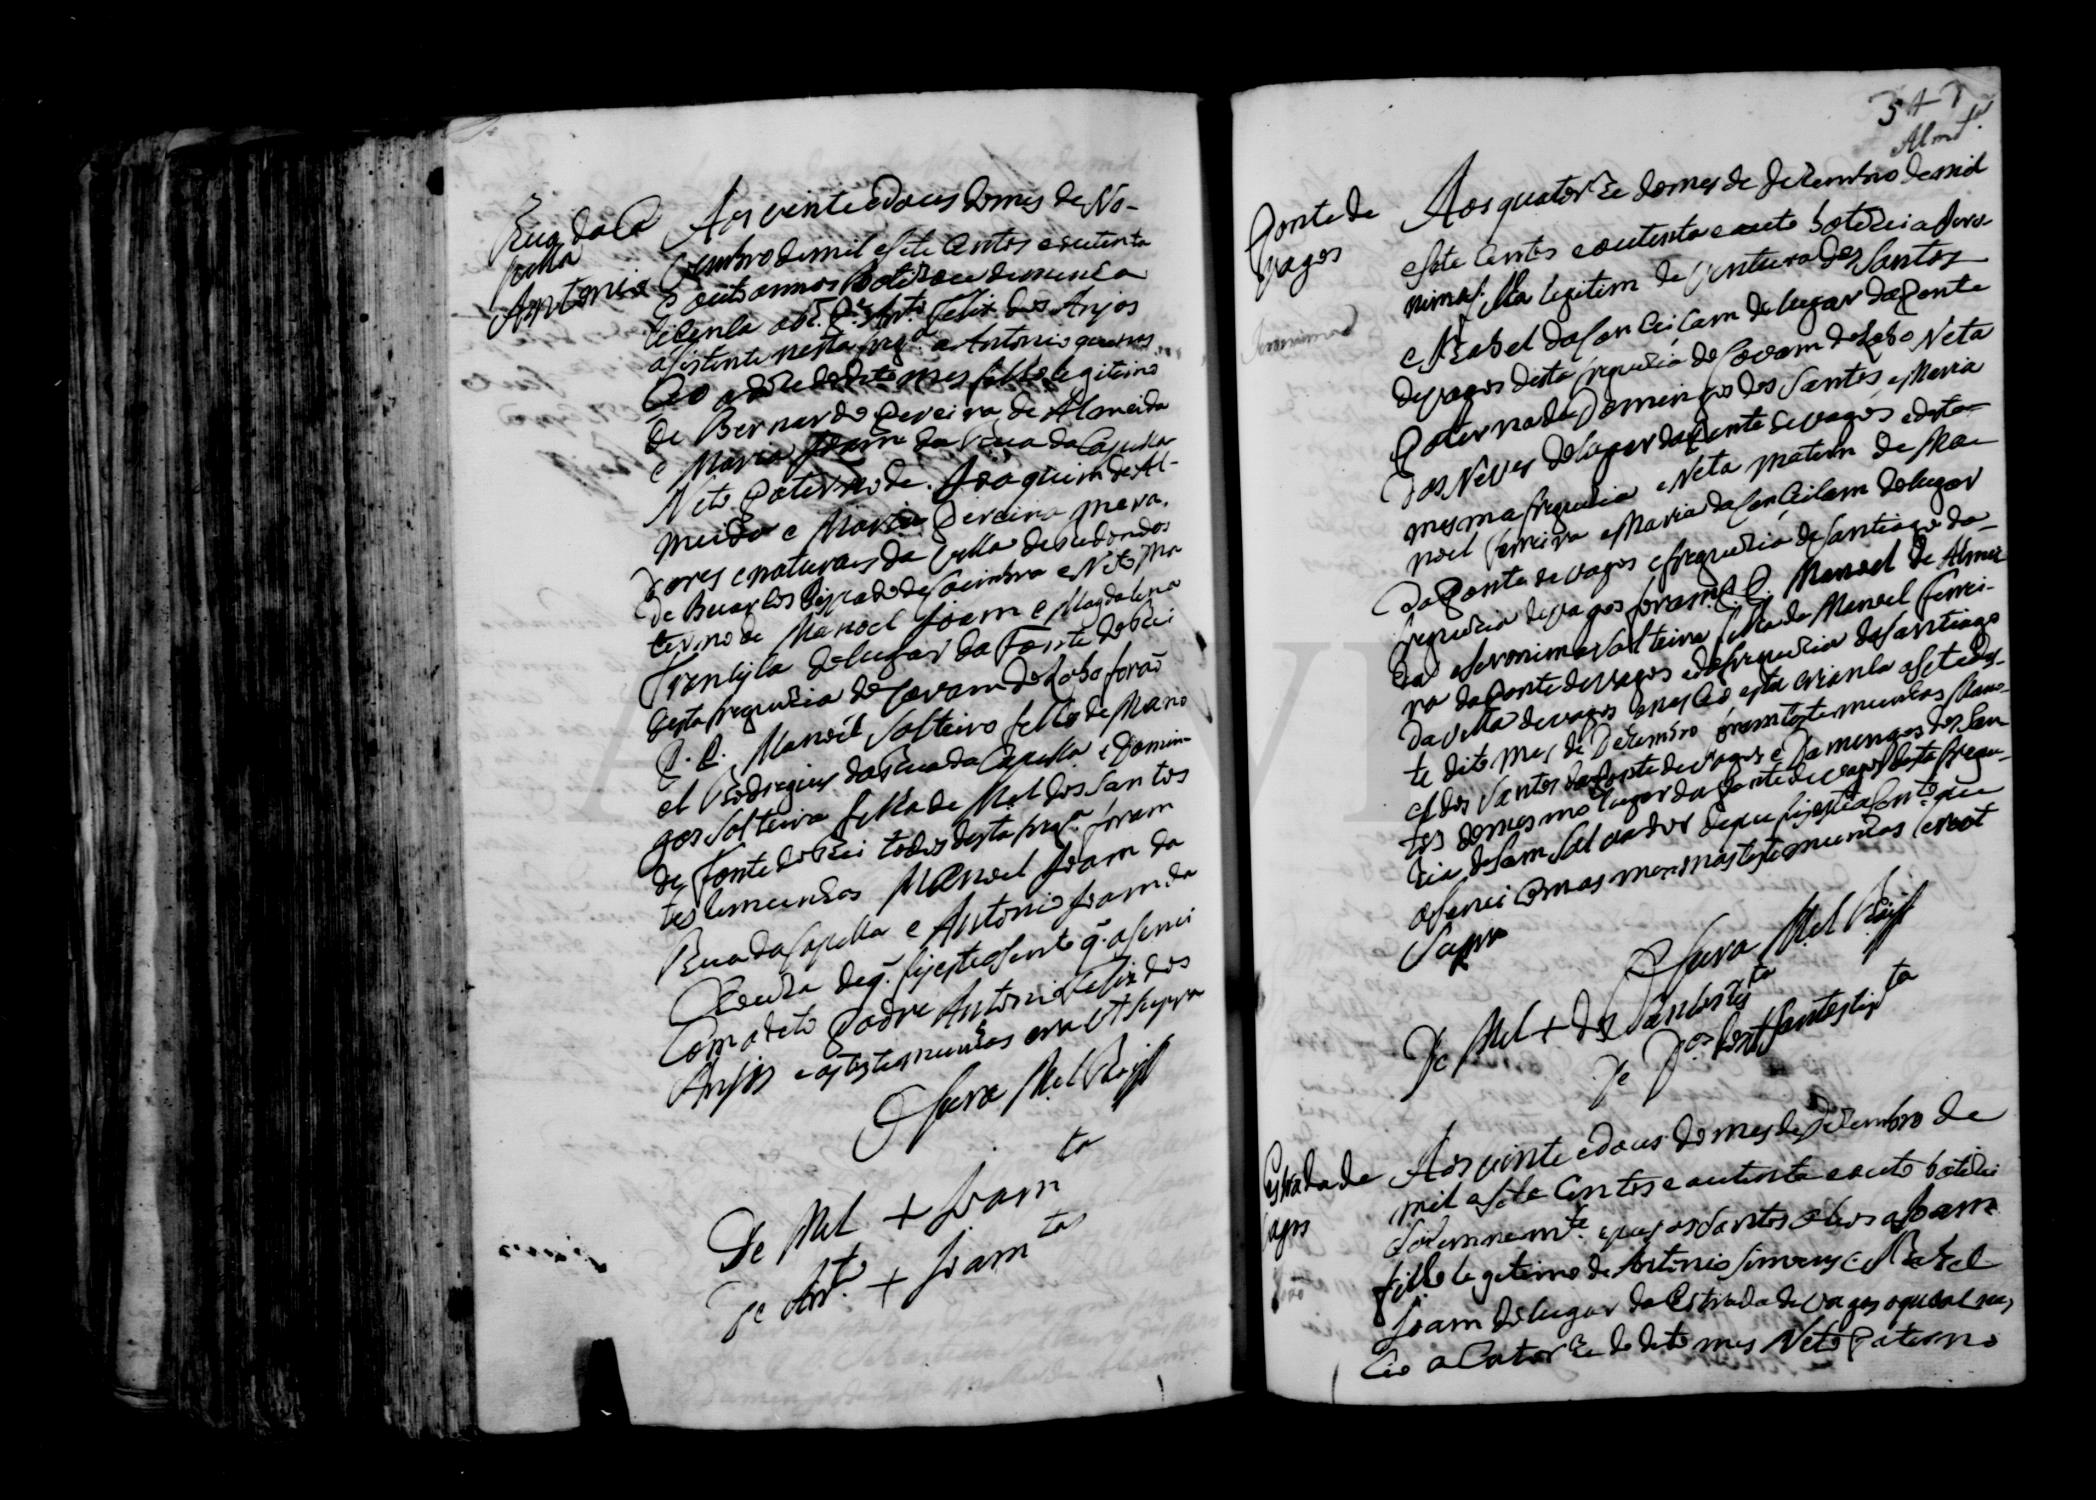 Rua da Ca
pella
Antonio
Aos vinte e dous do mes de No-
vembro de mil e sete centos e outenta
e outo annos Botizou de minha
licenla o P.e Ant.o Felix dos Anjos
asistente nesta freg.a a Antonio que nas
ceo a doze do dito mes filho legitimo
de Bernardo Pereira de Almeida
e Maria Joam da Rua da Capella
Neto Paterno de Joaquim de Al-
meida e Maria Pereira mora-
dores e naturais da villa de Redondos
de Buarcos Bispado de Coimbra e Neto Ma
terno de Manoel Joam e Magdalena
Francisca do lugar da Fonte do Rei
desta freguezia de Covam do Lobo forão
P. P. Manoel Solteiro filho de Mano
el Rodrigues da Rua da Capella e Domin-
gas Solteira filha de M.el dos Santos
da Fonte do Rei todos desta freg.a foram
testemunhas Manoel Joam da
Rua da Capella e Antonio Joam da
de q. fis este asento q. asinei
Com o dito Padre Antonio Felix dos
Anjos e as testemunhas era ut supra
O Cura M.el
De M.el + Joam ta
De Ant.o + Joam ta
347
Alm.da
Ponte de
vagos
Jeronima
Aos quatorze do mes de Dezembro de mil
e sete centos e outenta e outo botizei a Jero-
nima filha legitim de Ventura dos Santos
e Izabel da Conceicam do lugar da Ponte
de vagos desta freguezia de Covam do Lobo Neta
Paterna de Domingos dos Santos e Maria
das Neves do lugar da Ponte de vagos e desta
mesma freguezia e Neta matern de Ma-
noel Ferreira e Maria da Conceicam do lugar
da Ponte de vagos e freguezia de Santiago da
freguezia de vagos foram P. P. Manoel de Almei
da e Jeronima Solteira filha de Manoel Ferrei-
ra da Ponte de vagos e da freguezia de Santiago
da villa de vagos e nasceo esta crianla a sete des-
te dito mes de Dezembro foram testemunhas Mano-
el dos Santos da Ponte de vagos e Domingos dos San
tos do mesmo lugar da Ponte de vagos desta fregu-
zia de Sam Salvador de que fis este asento que
asinei com as mesmas testemunhas era ut
Supra
O Cura M.el
De M.el + dos Santos ta
De D.os Santos ta
Estrada de
vagos
João
Aos vinte e dous do mes de Dezembro de
mil e sete centos e outenta e outo botizei
solemnem.te e pus os Santos oleos a Joam
filho legitimo de Antonio Simoens e Izabel
Joam do lugar da Estrada de vagos o qual nas
ceo a Catorze do dito mes Neto Paterno